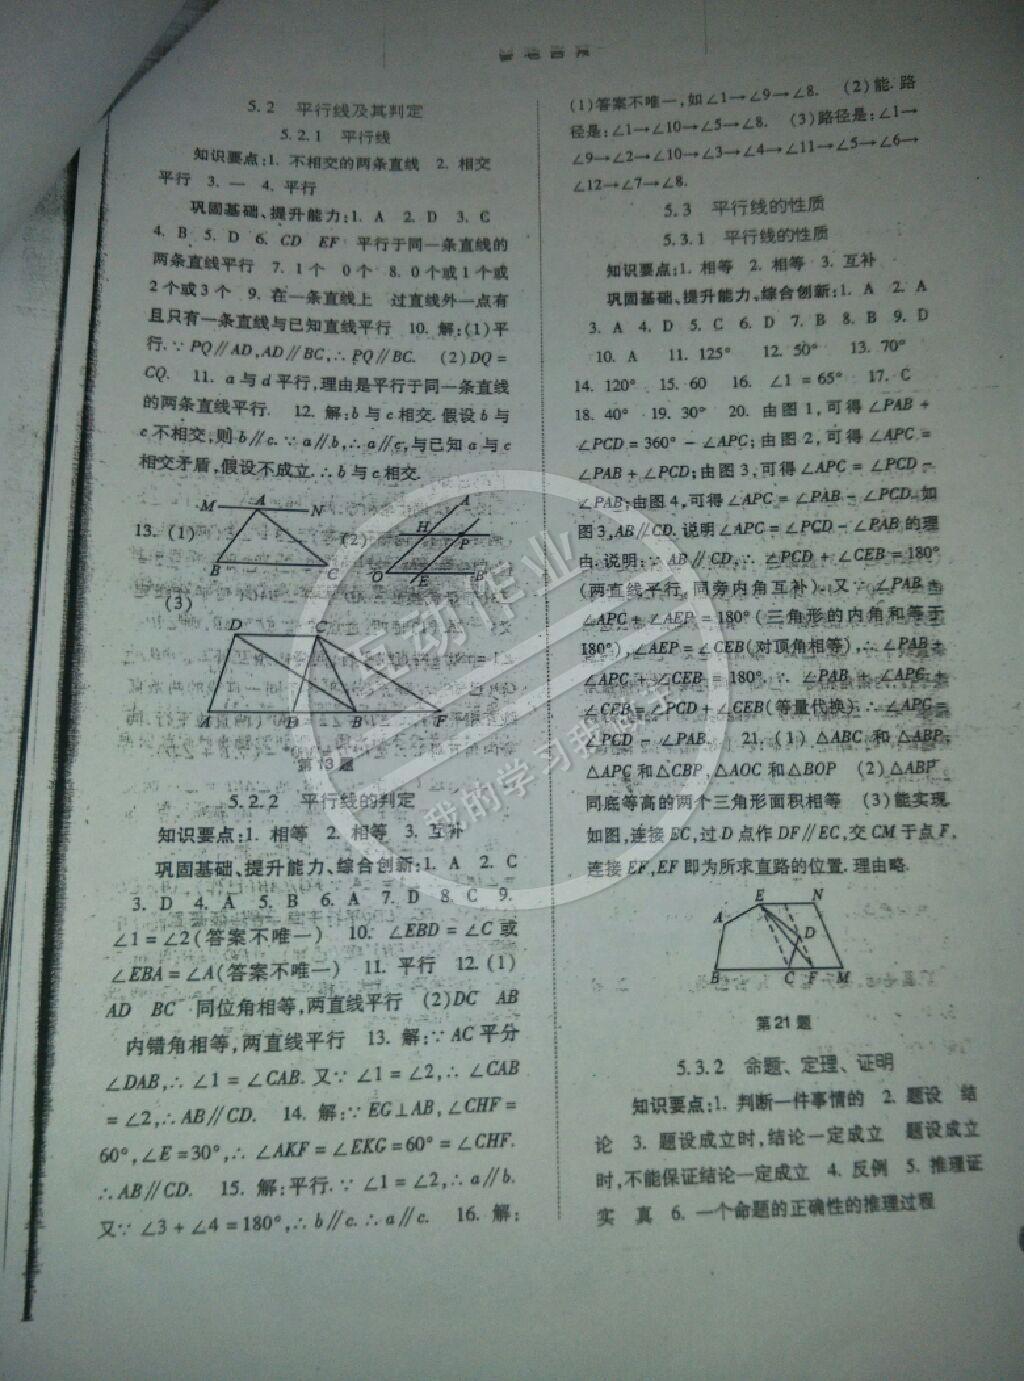 5.2 平行线及其判定
5.2.1 平行线
知识要点:1. 不相交的两条直线 2. 相交
平行 3. 一 4. 平行
巩固基础、提升能力:1. A 2. D 3. C
4. B 5. D 6. CD EF 平行于同一条直线的
两条直线平行 7. 1个 0个 8. 0个或1个或
2个或3个 9. 在一条直线上 过直线外一点有
且只有一条直线与已知直线平行 10. 解:(1)平
行.∵PQ∥AD,AD∥BC,∴PQ∥BC. (2)DQ=
CQ. 11. a与d平行,理由是平行于同一条直线
的两条直线平行. 12. 解:b与c相交.假设b与
c不相交,则b∥c.∵a∥b,∴a∥c,与已知a与c
相交矛盾,假设不成立.∴b与c相交.
M A N
13. (1) B C
(2) A H P O E B
(3)
D C
A D B F
第13题
5.2.2 平行线的判定
知识要点:1. 相等 2. 相等 3. 互补
巩固基础、提升能力、综合创新:1. A 2. C
3. D 4. A 5. B 6. A 7. D 8. C 9.
∠1=∠2(答案不唯一) 10. ∠EBD=∠C或
∠EBA=∠A(答案不唯一) 11. 平行 12. (1)
AD BC 同位角相等,两直线平行 (2)DC AB
内错角相等,两直线平行 13. 解:∵AC平分
∠DAB,∴∠1=∠CAB.又∵∠1=∠2,∴∠CAB
=∠2,∴AB∥CD. 14. 解:∵EG⊥AB,∠CHF=
60°,∠E=30°,∴∠AKF=∠EKG=60°=∠CHF.
∴AB∥CD. 15. 解:平行.∵∠1=∠2,∴a∥b.
又∵∠3+∠4=180°,∴b∥c.∴a∥c. 16. 解:
(1)答案不唯一,如∠1→∠9→∠8. (2)能.路
径是:∠1→∠10→∠5→∠8. (3)路径是:∠1→
∠9→∠2→∠10→∠3→∠4→∠11→∠5→∠6→
∠12→∠7→∠8.
5.3 平行线的性质
5.3.1 平行线的性质
知识要点:1. 相等 2. 相等 3. 互补
巩固基础、提升能力、综合创新:1. A 2. A
3. A 4. D 5. C 6. D 7. B 8. B 9. D
10. A 11. 125° 12. 50° 13. 70°
14. 120° 15. 60 16. ∠1=65° 17. C
18. 40° 19. 30° 20. 由图1,可得∠PAB+
∠PCD=360°-∠APC;由图2,可得∠APC=
∠PAB+∠PCD;由图3,可得∠APC=∠PCD-
∠PAB;由图4,可得∠APC=∠PAB-∠PCD.如
图3,AB∥CD.说明∠APC=∠PCD-∠PAB的理
由.说明:∵AB∥CD,∴∠PCD+∠CEB=180°
(两直线平行,同旁内角互补).又∵∠PAB+
∠APC+∠AEP=180°(三角形的内角和等于
180°),∠AEP=∠CEB(对顶角相等),∴∠PAB+
∠APC+∠CEB=180°.∴∠PAB+∠APC+
∠CEB=∠PCD+∠CEB(等量代换).∴∠APC=
∠PCD-∠PAB. 21. (1)△ABC和△ABP,
△APC和△CBP,△AOC和△BOP (2)△ABP
同底等高的两个三角形面积相等 (3)能实现.
如图,连接EC,过D点作DF∥EC,交CM于点F,
连接EF,EF即为所求直路的位置.理由略.
E N
A D
B C F M
第21题
5.3.2 命题、定理、证明
知识要点:1. 判断一件事情的 2. 题设 结
论 3. 题设成立时,结论一定成立 题设成立
时,不能保证结论一定成立 4. 反例 5. 推理证
实 真 6. 一个命题的正确性的推理过程
互动作业
我的学习我做